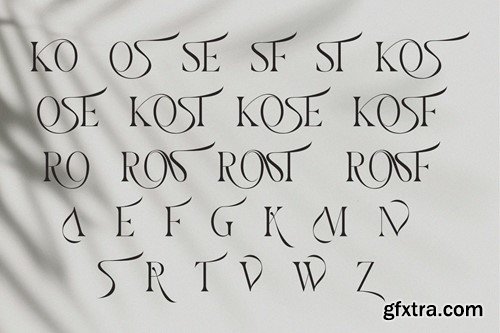 KO OS SE SF ST KOS
OSE KOST KOSE KOSF
RO ROS ROST ROSF
A E F G K M N
S R T V O W Z
gfxtra.com